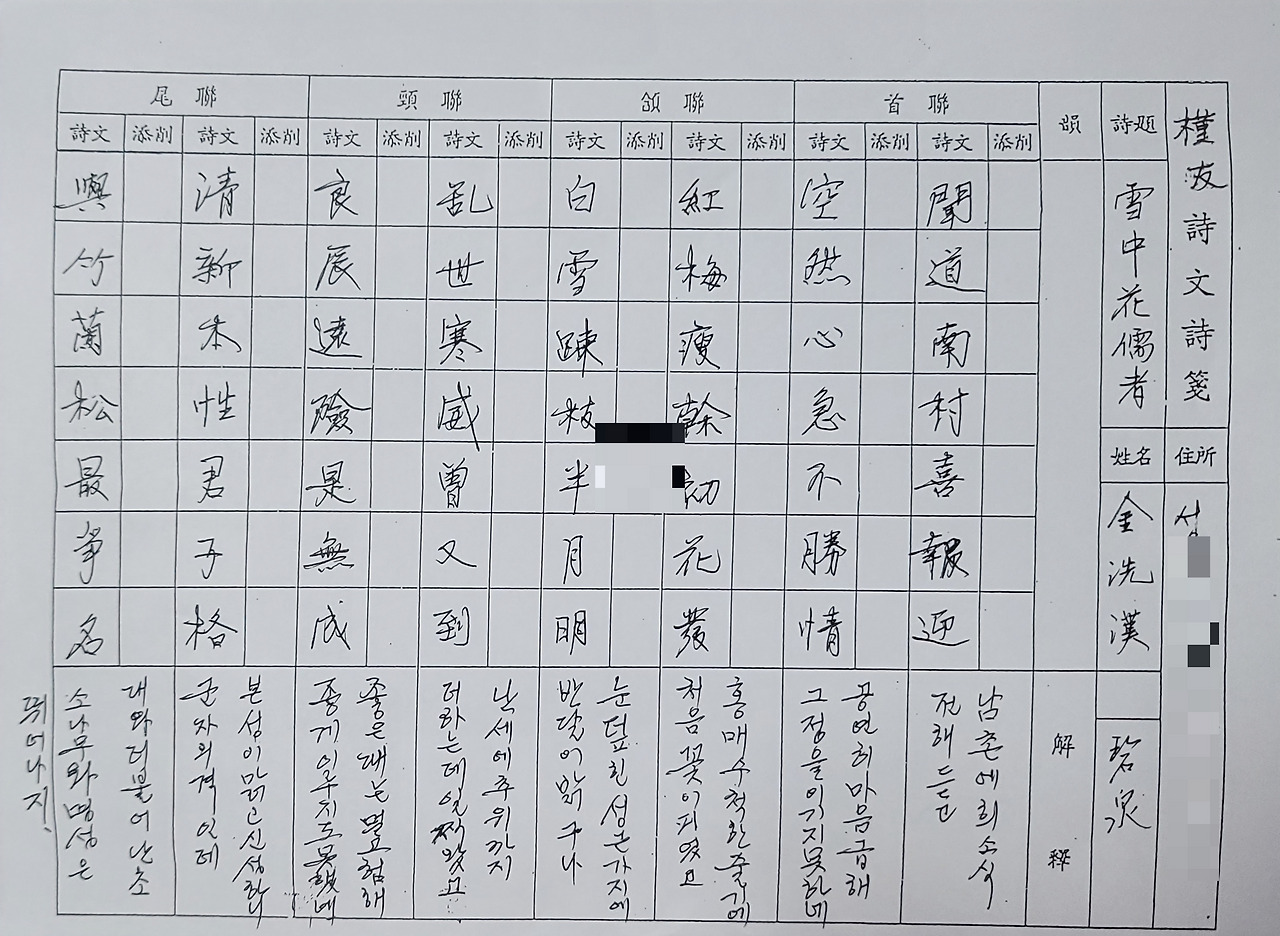 槿友詩文詩箋
住所
詩題
雪中花儒者
姓名
金洗漢
碧泉
韻
解釋
首聯
詩文
添削
聞道南村喜報迎
남촌에 희소식
전해 듣고
詩文
添削
空然心急不勝情
공연히 마음 급해
그 정을 이기지 못하네
頷聯
詩文
添削
紅梅瘦幹初花發
홍매 수척한 줄기에
처음 꽃이 피였고
詩文
添削
白雪踈枝半月明
눈 덮힌 성근 가지에
반달이 밝구나
頸聯
詩文
添削
乱世寒威曾又到
난세에 추위까지
더하는데 일찍 왔고
詩文
添削
良辰遠險是無成
좋은 때는 멀고 험해
좋게 이루지도 못했네
尾聯
詩文
添削
清新本性君子格
본성이 맑고 신성하니
군자의 격인데
詩文
添削
與竹蘭松最爭名
대와 더불어 난초
소나무와 명성은
뛰어나지.